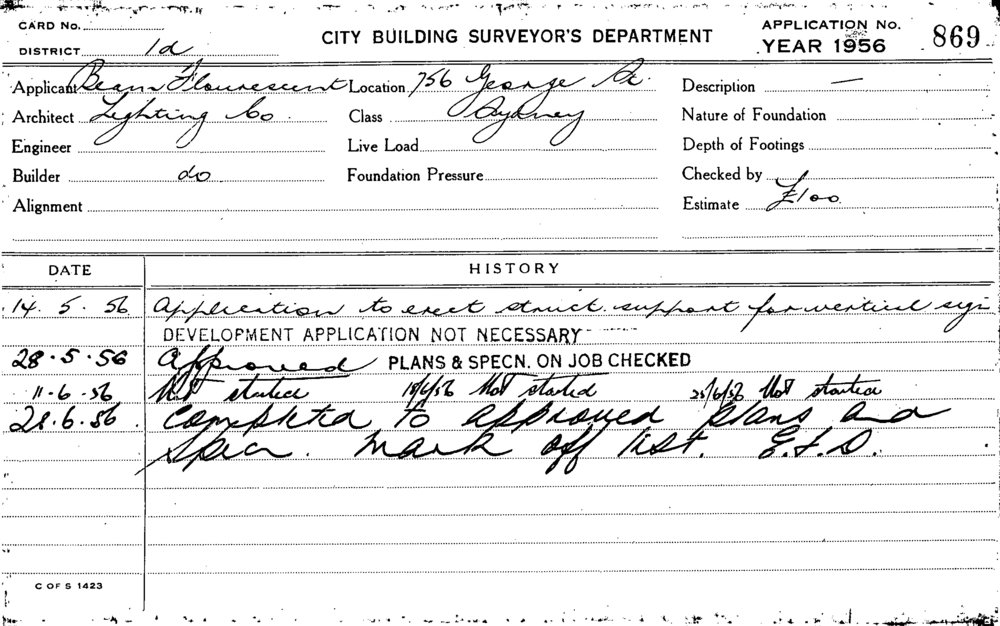 CARD No.
DISTRICT 1d
CITY BUILDING SURVEYOR'S DEPARTMENT
APPLICATION No.
YEAR 1956
869
Applicant Beam Flourescent Location 756 George St. Description —
Architect Lighting Co Class Sydney Nature of Foundation
Engineer Live Load Depth of Footings
Builder do Foundation Pressure Checked by
Alignment Estimate £100
DATE HISTORY
14. 5. 56 Application to erect struct. support for vertical sign
DEVELOPMENT APPLICATION NOT NECESSARY
28.5.56 Approved PLANS & SPECN. ON JOB CHECKED
11.6.56 Not started 18/6/56 Not started 25/6/56 Not started
28.6.56 Completed to approved plans and
Specn. Mark off list.
C OF S 1423